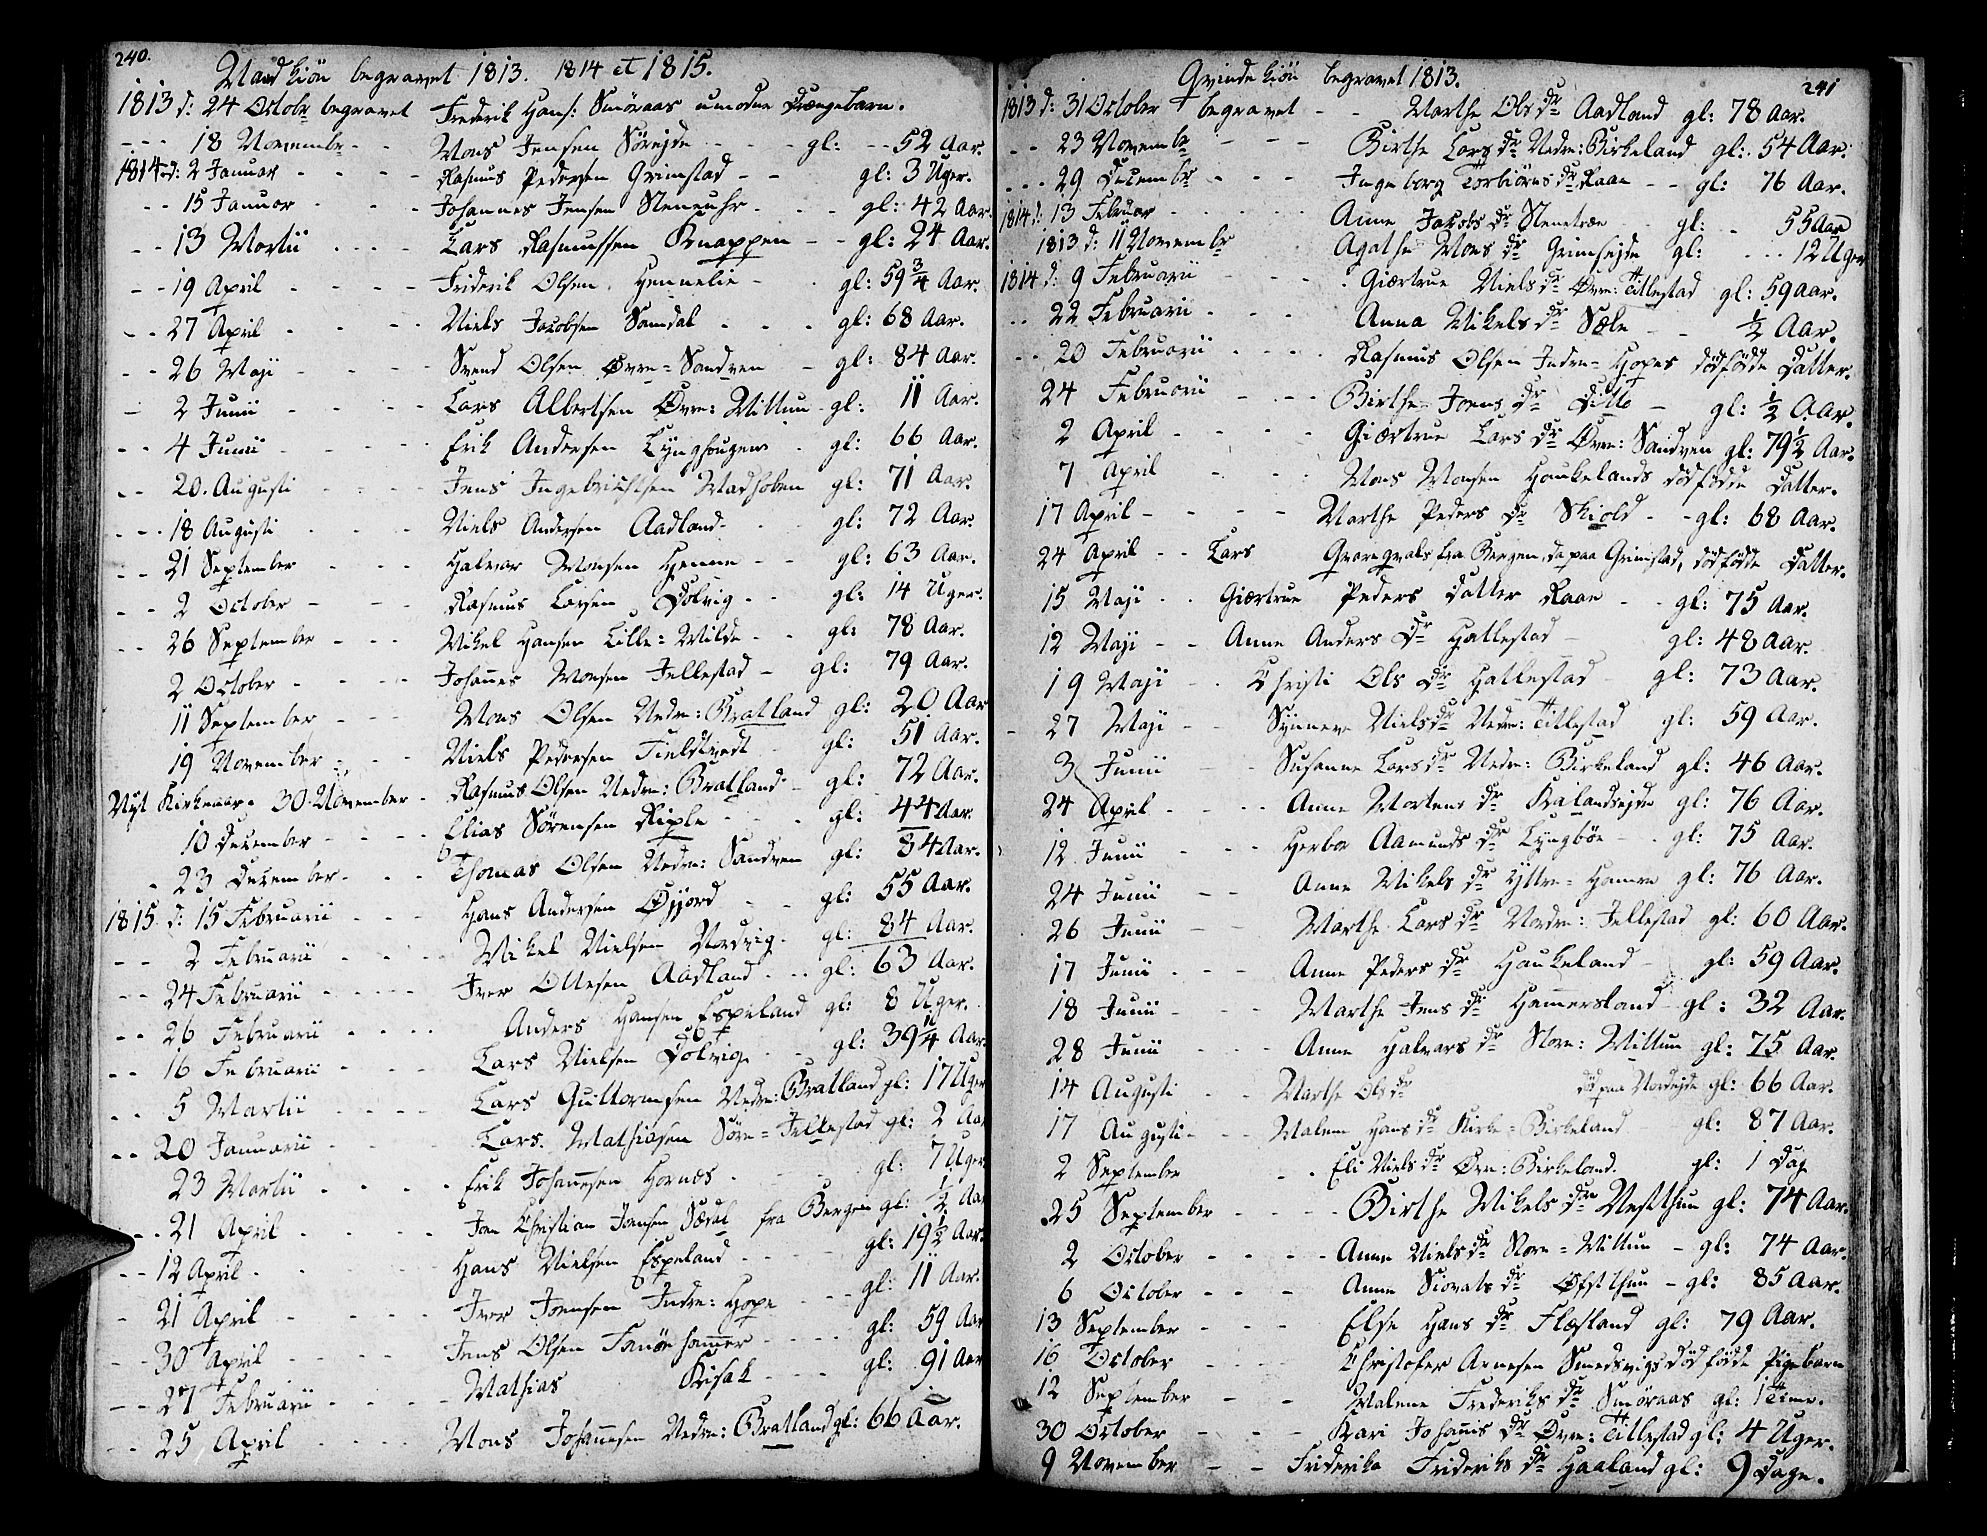 240.
Mandkiön begravet 1813. 1814 et 1815.
1813 d: 24 Octobr begravet Frederik Hans: Smöraas umodne Drengebarn.
--- 18 Novembr - - Mons Jensen Sörejde - - - gl: -- 52 Aar.
1814 d: 2 Januar - - - - Rasmus Pedersen Grimstad - - gl: 3 Uger.
-- 15 Januar - - - - Johannes Jensen Steneuhr - - - gl: 42 Aar.
-- 13 Martii - - - - Lars Rasmussen Knappen - - gl: 24 Aar.
-- 19 April - - - - Friderik Olsen Hennelie - gl: 59 3/4 Aar.
-- 27 April - - - - Niels Jacobsen Samdal - - - gl: 68 Aar.
-- 26 Maji - - - - Svend Olsen Øvre=Sandven - gl: 84 Aar.
- 2 Junii - - - - Lars Albertsen Øvre: Mittun - gl: 11 Aar.
-- 4 Junii - - - - Erik Andersen Lynghougen - gl: 66 Aar.
-- 20. Augusti - - - Jens Ingebrichtsen Madhoben gl: 71 Aar.
--- 18 Augusti - - - Niels Andersen Aadland - - gl: 72 Aar.
-- 21 September - - - Halvor Monsen Henne - - gl: 63 Aar.
-- 2 October - - - Rasmus Larsen Dolvig - - gl: 14 Uger.
-- 26 September - - - Mikel Hansen Lille=Milde - - gl: 78 Aar.
2 October - - - - Johanes Monsen Jellestad - gl: 79 Aar.
11 September - - - Mons Olsen Nedre: Bratland gl: 20 Aar
19 November - - - Niels Pedersen Tveldtvedt - gl: 51 Aar.
Nyt Kirkeaar. 30 November - Rasmus Olsen Nedre: Bratland - gl: 72 Aar.
10 December - - - Elias Sörensen Riple - - - gl: 44 Aar.
- 23 December - - - Thomas Olsen Nedre: Sandven gl: 54 Aar.
1815. d: 15 Februarii - - - Hans Andersen Øjjord - - gl: 55 Aar.
-- 2 Februarii - - - - Mikel Nielsen Nordvig - gl: 84 Aar.
-- 24 Februarii - - - - Iver Ottesen Aadland - - gl: 63 Aar.
-- 26 Februarii - - - - Anders Hansen Espeland gl: 8 Uger.
-- 16 Februarii - - - - Lars Nielsen Dolvig - - gl: 39 11/4 Aar.
-- 5 Martii - - - - Lars Guttormsen Nedre: Bratland gl: 17 Uger
-- 20 Januarii - - - - Lars: Mathiasen Söre=Jellestad gl: 2 Aar
23 Martii - - - - Erik Johanesen Hornæs - - - gl: 7 Uger
-- 21 April - - - - Jon Christian Joensen Sædal fra Bergen gl: 1/2 Aar
-- 12 April - - - - Hans Nielsen Espeland - - - - gl: 19 1/2 Aar.
- 21 April - - - - Iver Joensen Indre: Hope - - - gl: 11 Aar.
-- 30 April - - - - Jens Olsen Tanöehammer - - - - gl: 59 Aar
-- 27 Februarii - - - - Mathias Krisak - - - gl: 91 Aar
-- 25 April - - - - Mons Johanesen Nedre: Bratland gl: 66 Aar.
241
Qvindekiön begravet 1813.
1813 d: 31 October begravet - - Marthe Ols dr Aadland gl: 78 Aar.
-- 23 Novembr - - - Birthe Lars dr Nedre: Birkeland gl: 54 Aar.
--- 29 Decembr - - - Ingeborg Torbiörns dr Raae - - gl: 76 Aar.
1814 d: 13 Februar - - - - Anne Jakobs dr Stenetræe gl: - 55 Aar
1813 d: 11 Novembr Agathe Mons dr Grimsejde gl: - - - 12 Uger
1814 d: 9 Februarii - - - Giærtrue Niels dr Øvre: Titlestad gl: 59 aar.
-- 22 Februarii - - - Anna Mikels dr Sæle - - 1/2 Aar.
-- 20 Februarii - - - Rasmus Olsen Indre=Hopes dödfödde Datter.
24 Februarii - - - Birthe Joens dr Ditto - gl: 1/2 Aar.
2 April - - - - Giærtrue Lars dr Øvre: Sandven gl: 79 1/2 Aar.
7 April - - - Mons Monsen Haukelands dödfödde Datter.
17 April - - - - Marthe Peders dr Skiold - - gl: 68 Aar.
24 April - - Lars Qvaregvals fra Bergen, da paa Grimstad, dödfödde Datter.
15 Maji - - Giærtrue Peders Datter Raae - - gl: 75 Aar.
12 Maji - - Anne Anders Dr Hatlestad - gl: 48 Aar.
19 Maji - - Christi Ols Dr Hatlestad - gl: 73 Aar.
- 27 Maji - - Synneve Niels dr Nedre: Titlestad gl: 59 Aar.
3 Junii - - Susanne Lars dr Nedre: Birkeland gl: 46 Aar.
24 April - - - - Anne Mortens dr Kalandsejde gl: 76 Aar.
12 Junii - - - Herbor Aamunds dr Lyngböe - - gl: 75 Aar.
24 Junii - - Anne Mikels dr Yttre=Hamre gl: 76 Aar.
26 Junii - - Marthe Lars dr Nordre: Jellestad gl: 60 Aar.
17 Junii - - - Anne Peders dr Haukeland - gl: 59 Aar.
18 Junii - - - Marthe Jens dr Hamersland - gl: 32 Aar.
28 Junii - - - Anne Halvors dr Store: Mittun gl: 75 Aar.
14 Augusti - - Marthe Ols dr död paa Nordejde gl: 66 Aar.
17 Augusti - - Malene Hans dr Kirke=Birkeland gl: 87 Aar.
2 September - - Eli Niels dr Øvre: Birkeland. gl: 1 Dag
25 September - - - - Birthe Mikels dr Nestthun gl: 74 Aar.
2 October - - - - Anne Niels dr Store=Mittun - gl: 74 Aar.
6 October - - - Anne Siovats dr Øfstthun - gl: 85 Aar.
13 September - - - Else Hans dr Flesland gl: 79 Aar.
16 October - - - - Christofer Arnesen Smedsvigs dödfödde Pigebarn
12 September - - Malene Frederiks dr Smöraas gl: 1 Time.
30 October - - - Kari Johanis dr Øvre: Titlestad gl: 4 Uger.
9 November - - Friderika Frideriks dr Haaland gl: 9 Dage.